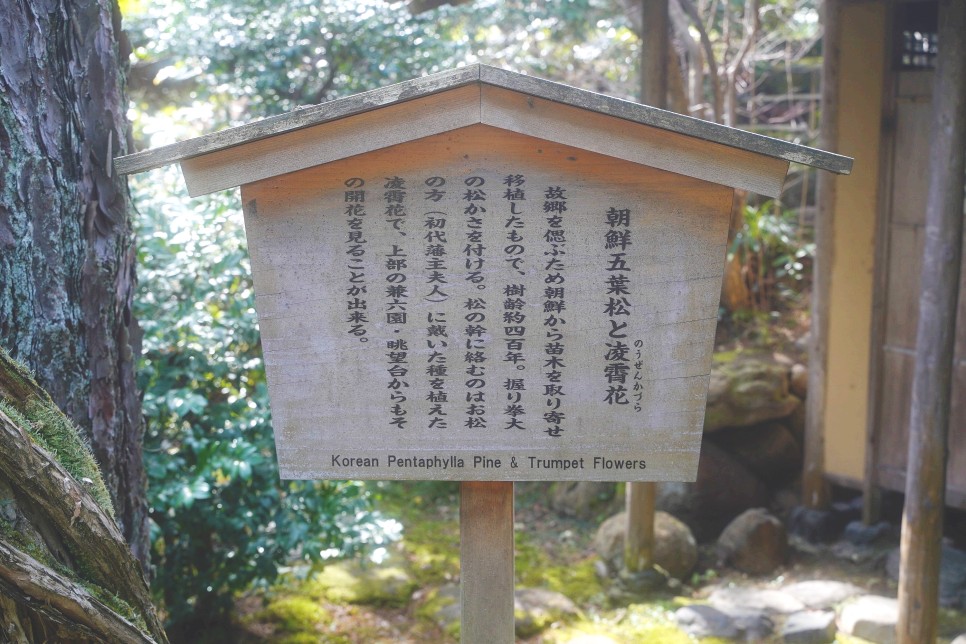 朝鮮五葉松と凌霄花
のうぜんかづら
故郷を偲ぶため朝鮮から苗木を取り寄せ
移植したもので、樹齢約四百年。握り拳大
の松かさを付ける。松の幹に絡むのはお松
の方（初代藩主夫人）に戴いた種を植えた
凌霄花で、上部の兼六園・眺望台からもそ
の開花を見ることが出来る。
Korean Pentaphylla Pine & Trumpet Flowers